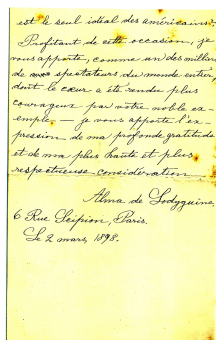 est le seul idéal des américains.
Profitant de cette occasion, je
vous apporte, comme un des millions
de spectateurs du monde entier,
dont le cœur a été rendu plus
courageux par votre noble ex-
emple, — je vous apporte l'ex-
pression de ma profonde gratitude
et de ma plus haute et plus
respectueuse considération
Alma de Lodyguine.
6 Rue Scipion, Paris.
Le 2 mars, 1898.